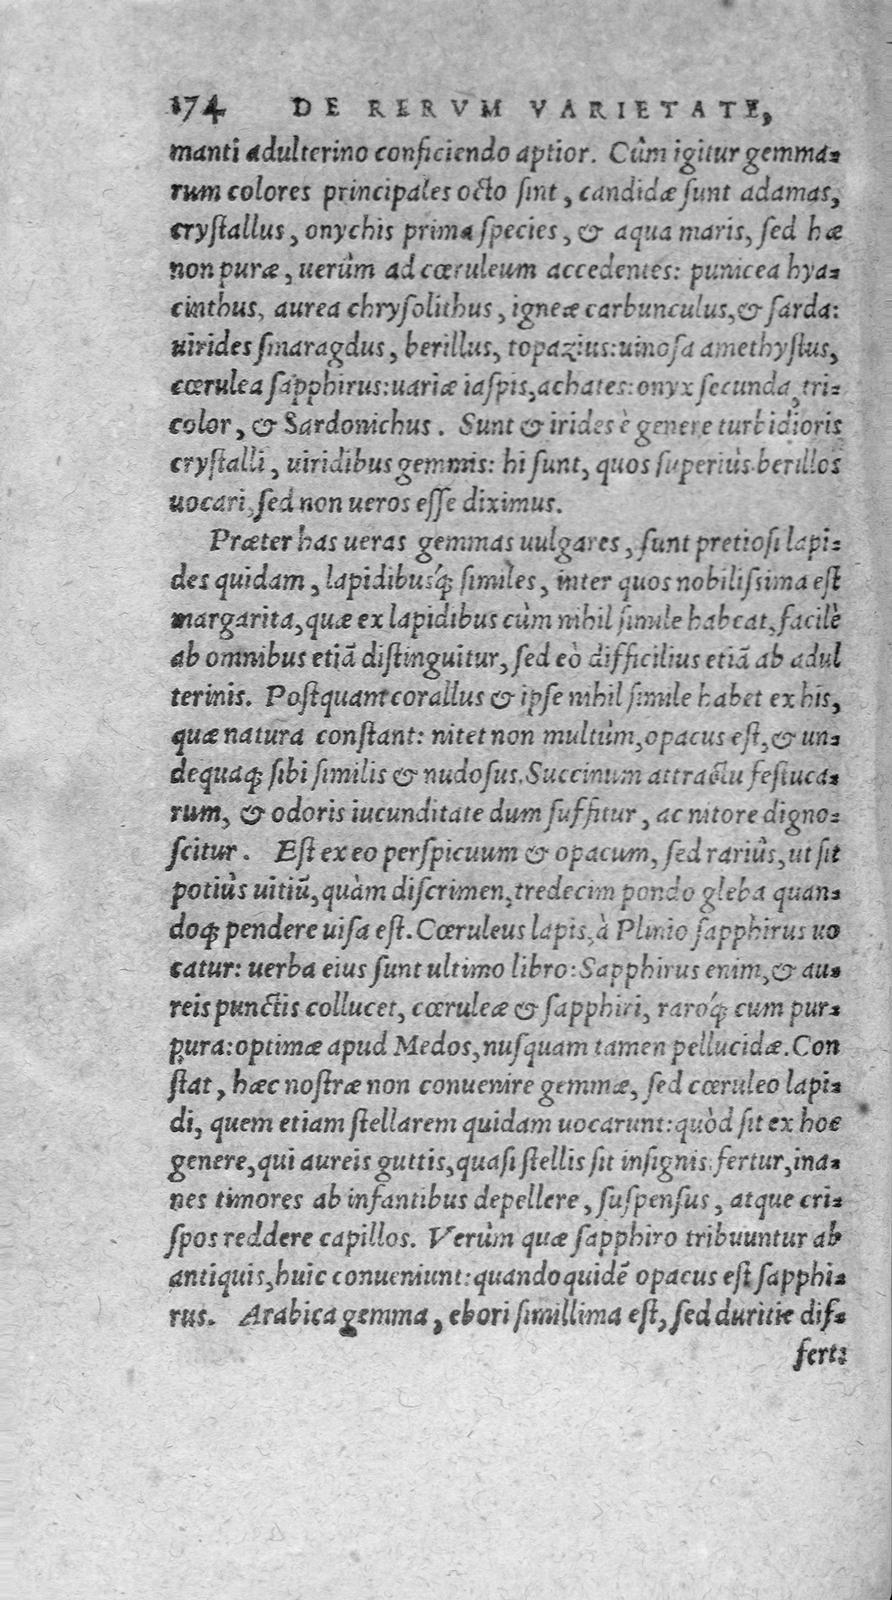 174 DE RERVM VARIETATE,
manti adulterino conficiendo aptior. Cûm igitur gemma-
rum colores principales octo sint, candidæ sunt adamas,
crystallus, onychis prima species, & aqua maris, sed hæ
non puræ, uerûm ad cœruleum accedentes: punicea hya-
cinthus, aurea chrysolithus, igneæ carbunculus, & sarda:
uirides smaragdus, berillus, topazius: uinosa amethystus,
cœrulea sapphirus: uariæ iaspis, achates: onyx secunda, tri-
color, & Sardonichus. Sunt & irides è genere turbidioris
crystalli, uiridibus gemmis: hi sunt, quos superiùs berillos
uocari, sed non ueros esse diximus.
Præter has ueras gemmas uulgares, sunt pretiosi lapi-
des quidam, lapidibusq́; similes, inter quos nobilissima est
margarita, quæ ex lapidibus cùm nihil simile habeat, facilè
ab omnibus etiã distinguitur, sed eò difficilius etiã ab adul
terinis. Postquam corallus & ipse nihil simile habet ex his,
quæ natura constant: nitet non multùm, opacus est, & un-
dequaq; sibi similis & nudosus. Succinum attractu festuca-
rum, & odoris iucunditate dum suffitur, ac nitore digno-
scitur. Est ex eo perspicuum & opacum, sed rariùs, ut sit
potiùs uitiũ, quàm discrimen, tredecim pondo gleba quan-
doq; pendere uisa est. Cœruleus lapis, à Plinio sapphirus uo
catur: uerba eius sunt ultimo libro: Sapphirus enim, & au-
reis punctis collucet, cœruleæ & sapphiri, raroq́; cum pur-
pura: optimæ apud Medos, nusquam tamen pellucidæ. Con
stat, hæc nostræ non conuenire gemmæ, sed cœruleo lapi-
di, quem etiam stellarem quidam uocarunt: quòd sit ex hoc
genere, qui aureis guttis, quasi stellis sit insignis: fertur, ina-
nes timores ab infantibus depellere, suspensus, atque cri-
spos reddere capillos. Verùm quæ sapphiro tribuuntur ab
antiquis, huic conueniunt: quandoquidẽ opacus est sapphi-
rus. Arabica gemma, ebori simillima est, sed duritie dif-
fert: